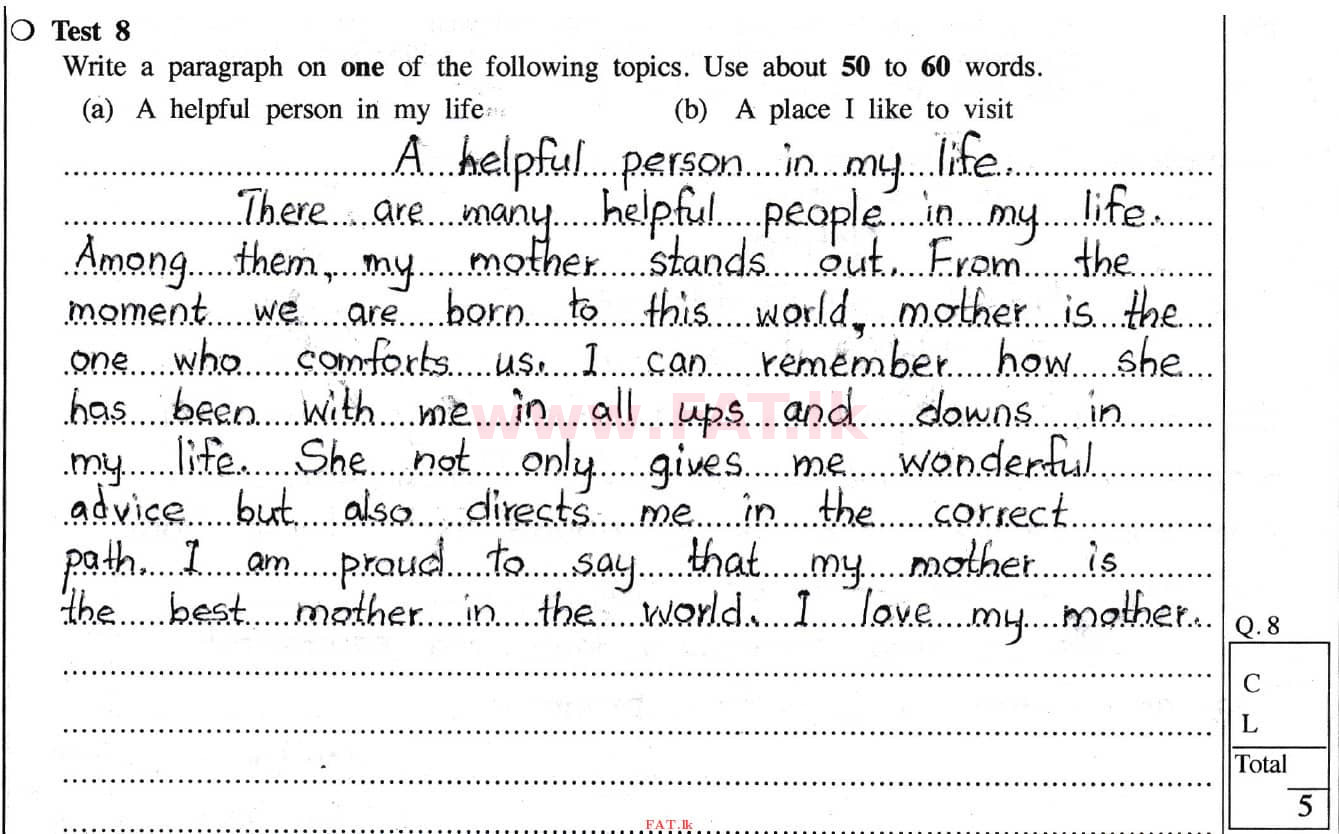 Test 8
Write a paragraph on one of the following topics. Use about 50 to 60 words.
(a) A helpful person in my life (b) A place I like to visit
A helpful person in my life.
There are many helpful people in my life.
Among them, my mother stands out. From the
moment we are born to this world, mother is the
one who comforts us. I can remember how she
has been with me in all ups and downs in
www.FAT.lk
my life. She not only gives me wonderful
advice but also directs me in the correct
path. I am proud to say that my mother is
the best mother in the world. I love my mother.
Q. 8
C
L
Total
5
FAT.lk